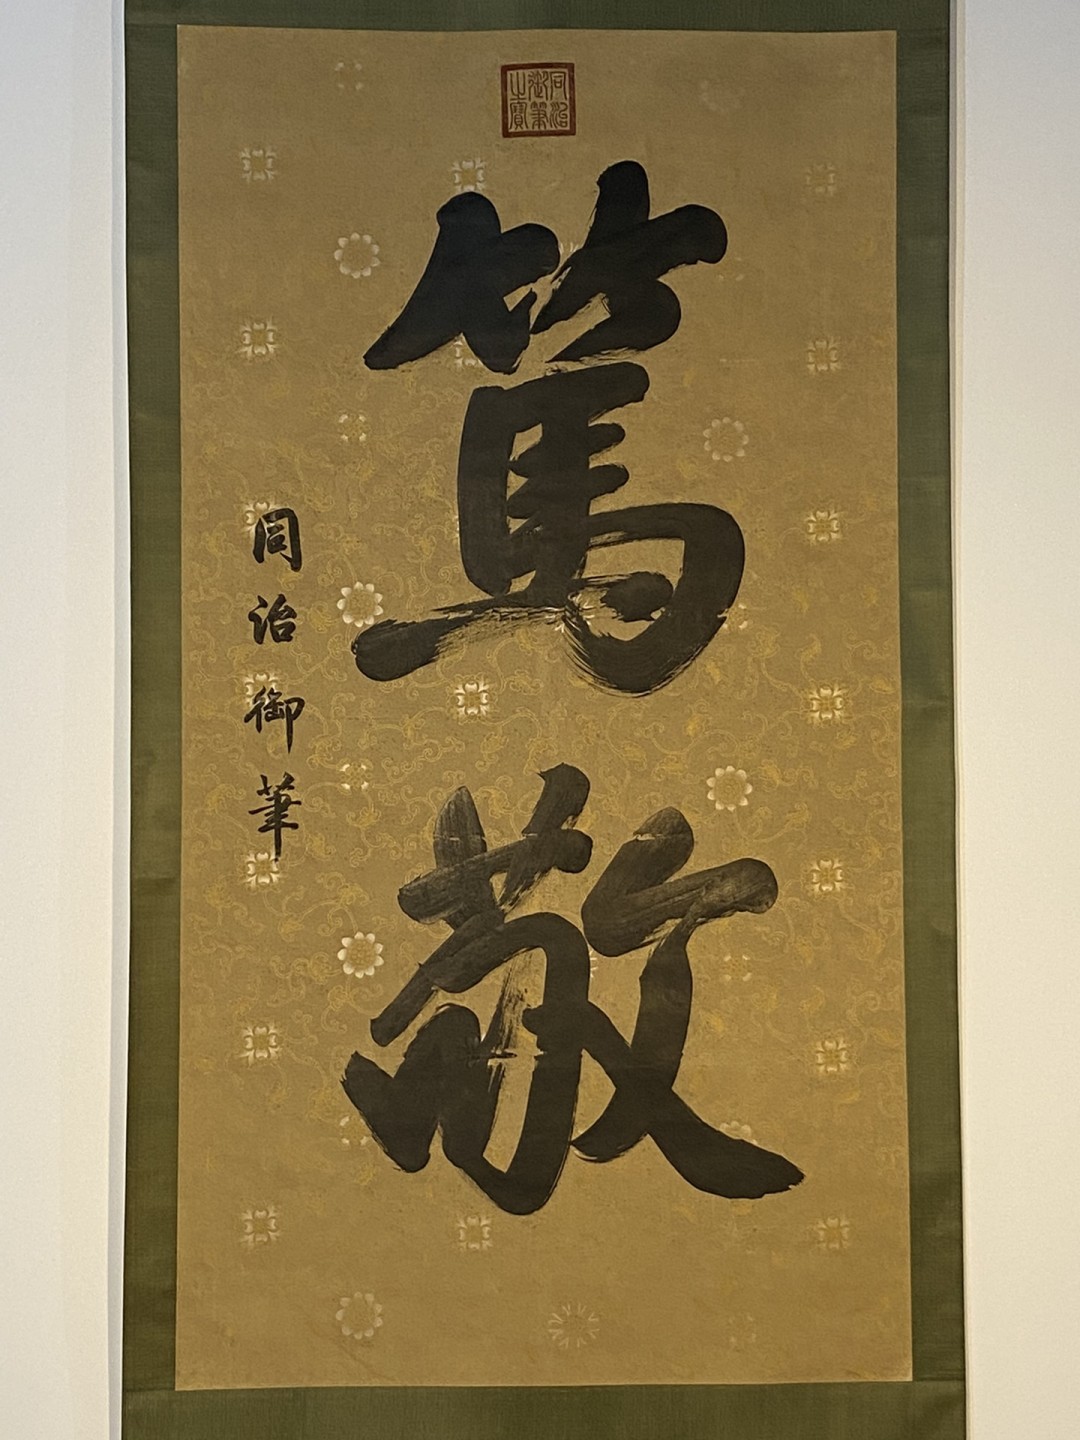 同治御筆之寶
篤敬
同治御筆